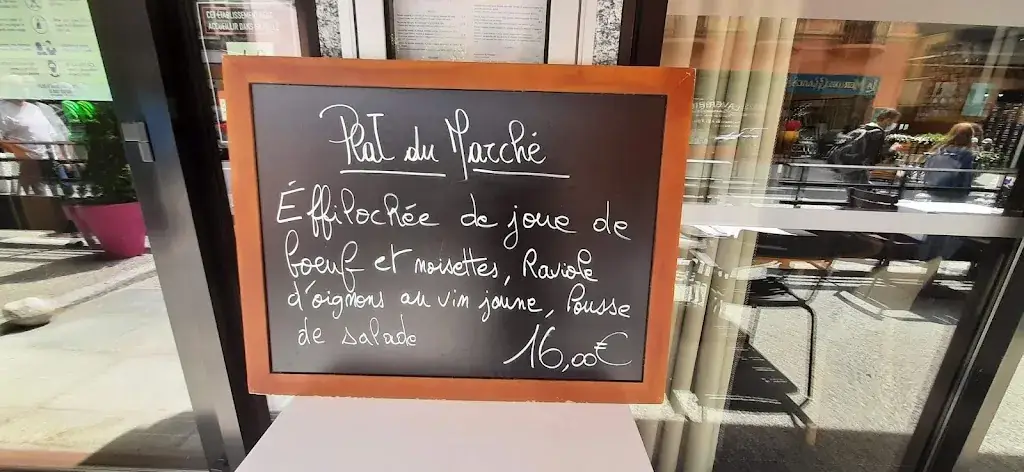 CET ÉTABLISSEMENT
Plat du Marché
Éffilochée de joue de
boeuf et noisettes, Raviole
d'oignons au vin jaune, Pousse
de salade
16,00€